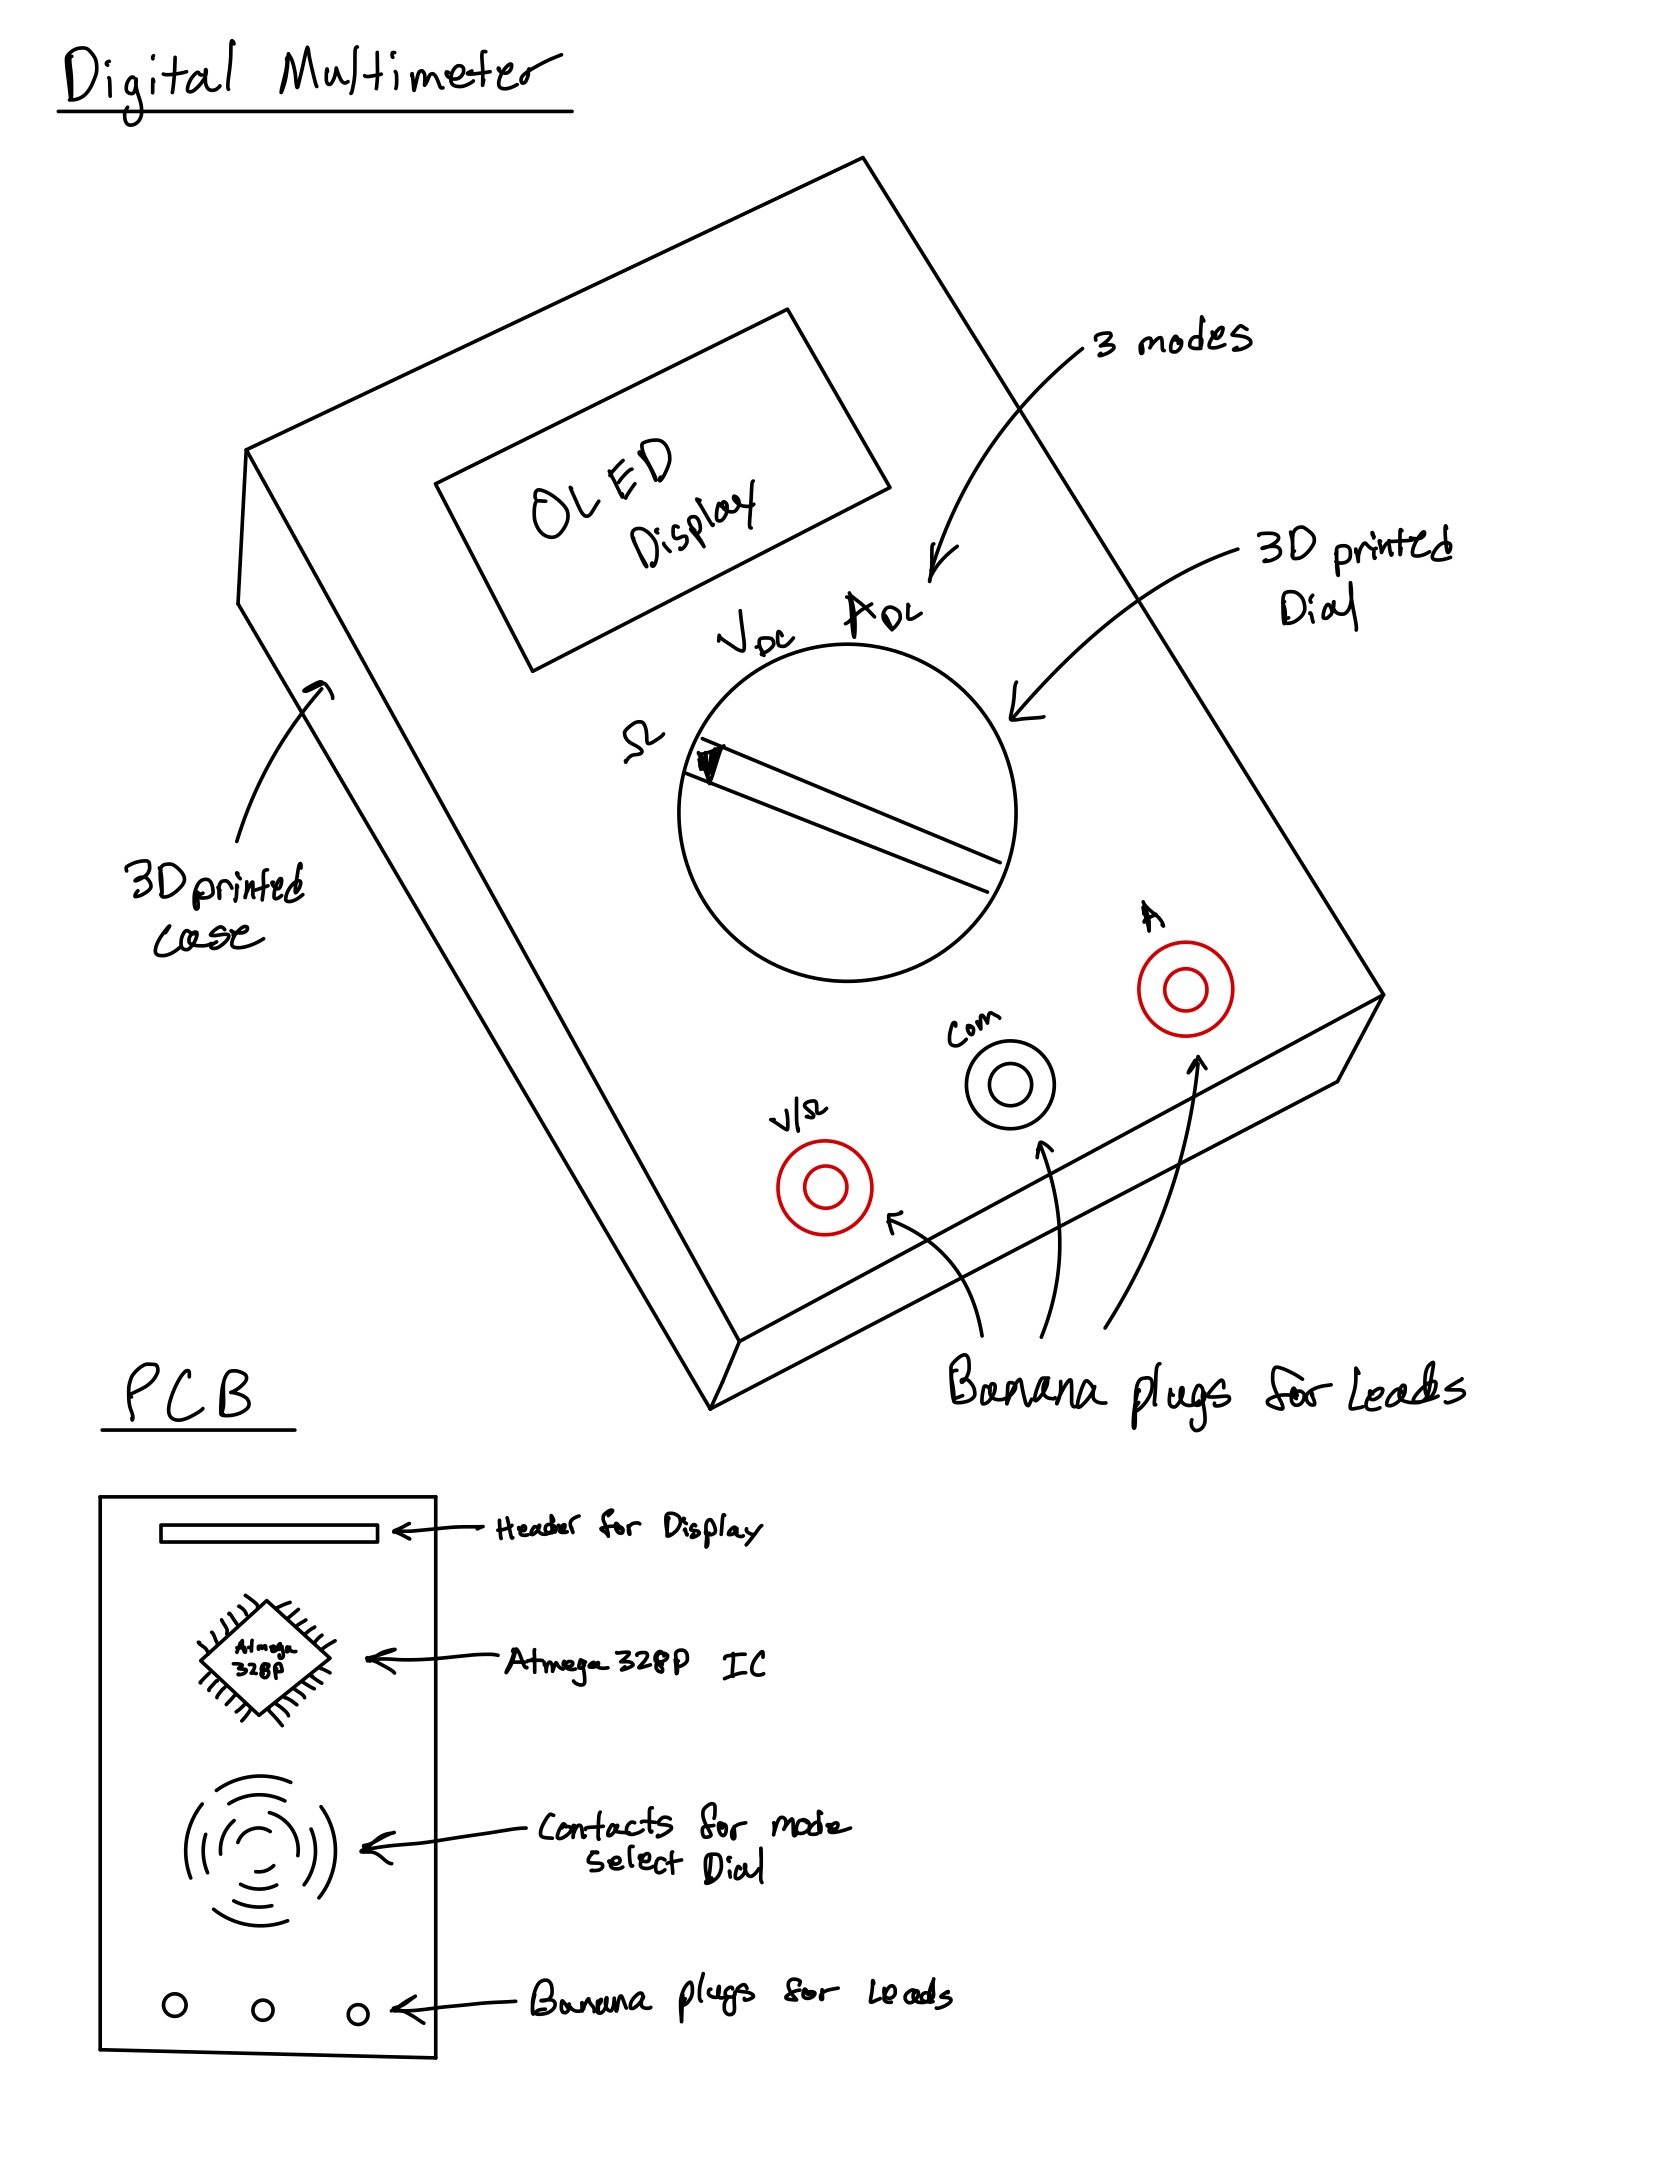 Digital Multimeter
3 modes
OLED
Display
3D printed
Dial
VDC ADC
Ω
3D printed
case
A
Com
V/Ω
Banana plugs for Leads
PCB
Header for Display
Atmega
328P
Atmega 328P IC
Contacts for mode
select Dial
Banana plugs for Leads